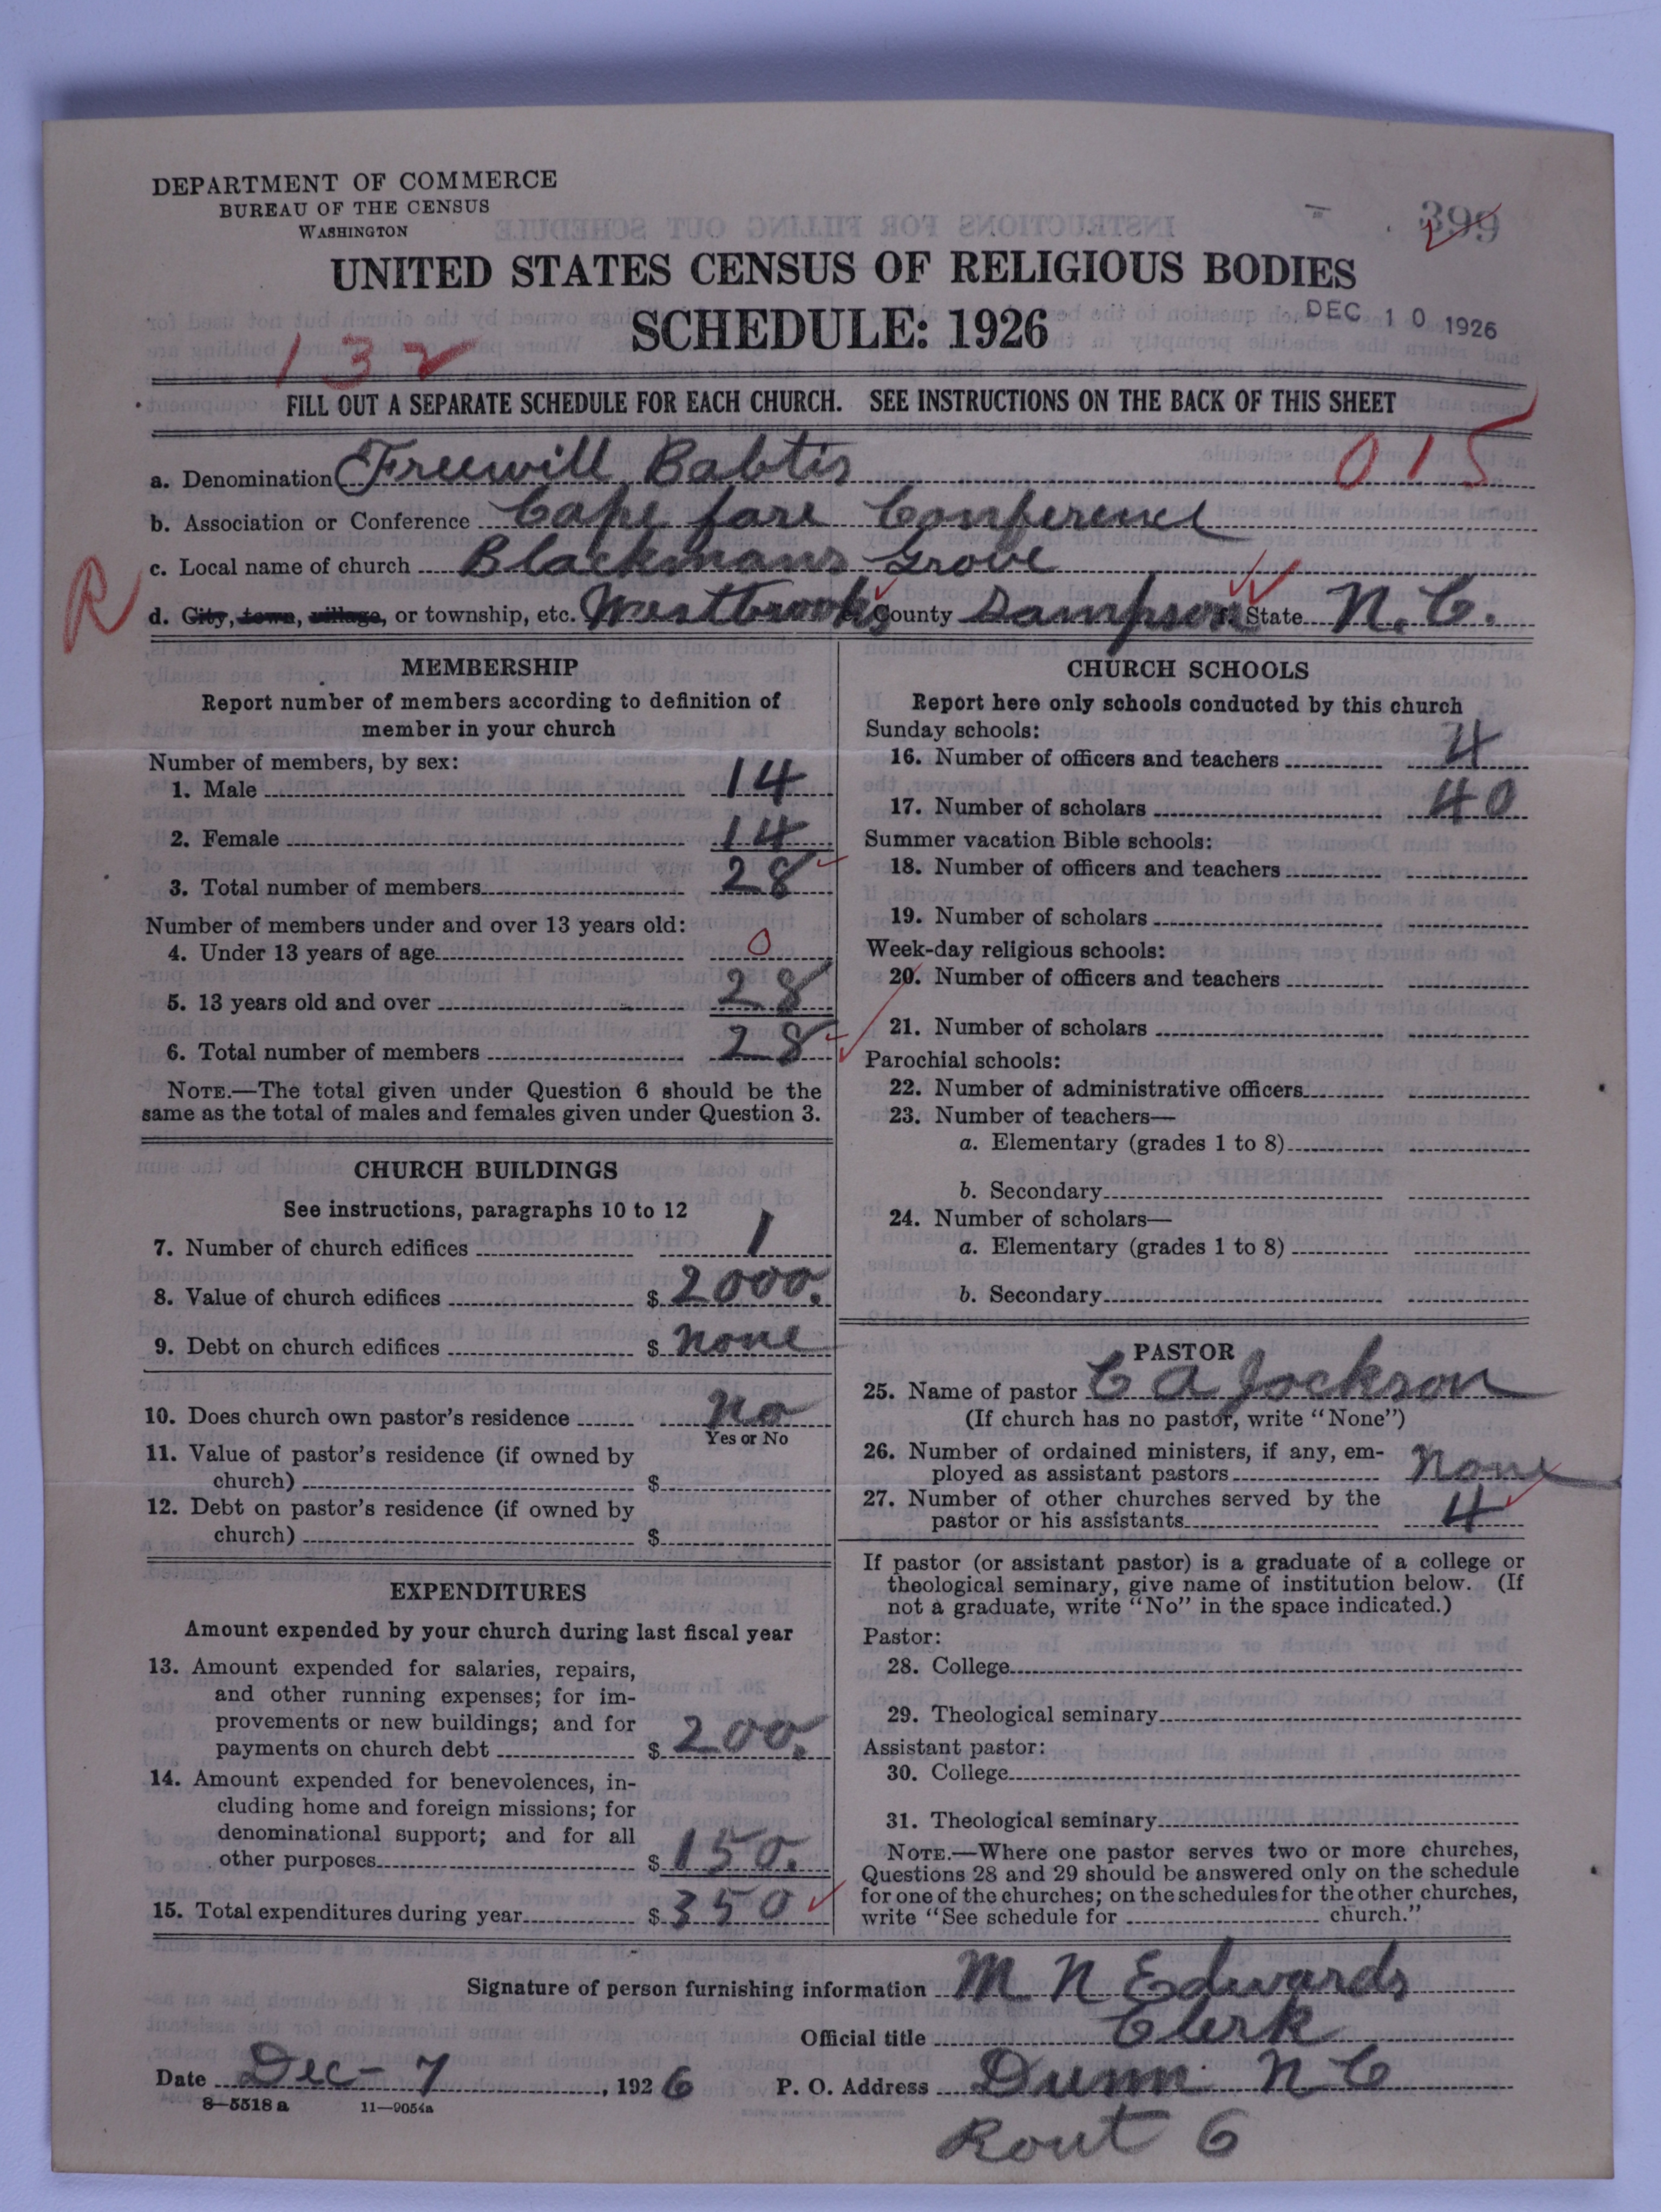 DEPARTMENT OF COMMERCE
BUREAU OF THE CENSUS
WASHINGTON
399
UNITED STATES CENSUS OF RELIGIOUS BODIES
SCHEDULE: 1926
DEC 10 1926
132
FILL OUT A SEPARATE SCHEDULE FOR EACH CHURCH. SEE INSTRUCTIONS ON THE BACK OF THIS SHEET
015
a. Denomination Freewill Babtis
b. Association or Conference Cape fare Conference
c. Local name of church Blackmans Grove
R
d. City, town, village, or township, etc. Westbrooks County Sampson State N.C.
MEMBERSHIP
Report number of members according to definition of
member in your church
Number of members, by sex:
1. Male 14
2. Female 14
3. Total number of members 28
Number of members under and over 13 years old:
4. Under 13 years of age 0
5. 13 years old and over 28
6. Total number of members 28
NOTE.—The total given under Question 6 should be the
same as the total of males and females given under Question 3.
CHURCH BUILDINGS
See instructions, paragraphs 10 to 12
7. Number of church edifices 1
8. Value of church edifices $ 2000.
9. Debt on church edifices $ none
10. Does church own pastor's residence no
Yes or No
11. Value of pastor's residence (if owned by
church) $
12. Debt on pastor's residence (if owned by
church) $
EXPENDITURES
Amount expended by your church during last fiscal year
13. Amount expended for salaries, repairs,
and other running expenses; for im-
provements or new buildings; and for
payments on church debt $ 200.
14. Amount expended for benevolences, in-
cluding home and foreign missions; for
denominational support; and for all
other purposes $ 150.
15. Total expenditures during year $ 350
CHURCH SCHOOLS
Report here only schools conducted by this church
Sunday schools:
16. Number of officers and teachers 4
17. Number of scholars 40
Summer vacation Bible schools:
18. Number of officers and teachers
19. Number of scholars
Week-day religious schools:
20. Number of officers and teachers
21. Number of scholars
Parochial schools:
22. Number of administrative officers
23. Number of teachers—
a. Elementary (grades 1 to 8)
b. Secondary
24. Number of scholars—
a. Elementary (grades 1 to 8)
b. Secondary
PASTOR
25. Name of pastor C A Jackson
(If church has no pastor, write "None")
26. Number of ordained ministers, if any, em-
ployed as assistant pastors none
27. Number of other churches served by the
pastor or his assistants 4
If pastor (or assistant pastor) is a graduate of a college or
theological seminary, give name of institution below. (If
not a graduate, write "No" in the space indicated.)
Pastor:
28. College
29. Theological seminary
Assistant pastor:
30. College
31. Theological seminary
NOTE.—Where one pastor serves two or more churches,
Questions 28 and 29 should be answered only on the schedule
for one of the churches; on the schedules for the other churches,
write "See schedule for church."
Signature of person furnishing information M N Edwards
Official title Clerk
Date Dec - 7, 1926 P. O. Address Dunn N C
8—5518 a 11—9054a
Rout 6